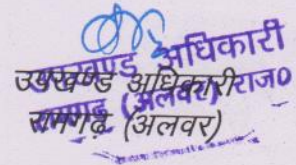 उपखण्ड अधिकारी
रामगढ़ (अलवर) राज०
उपखण्ड अधिकारी
रामगढ़ (अलवर)